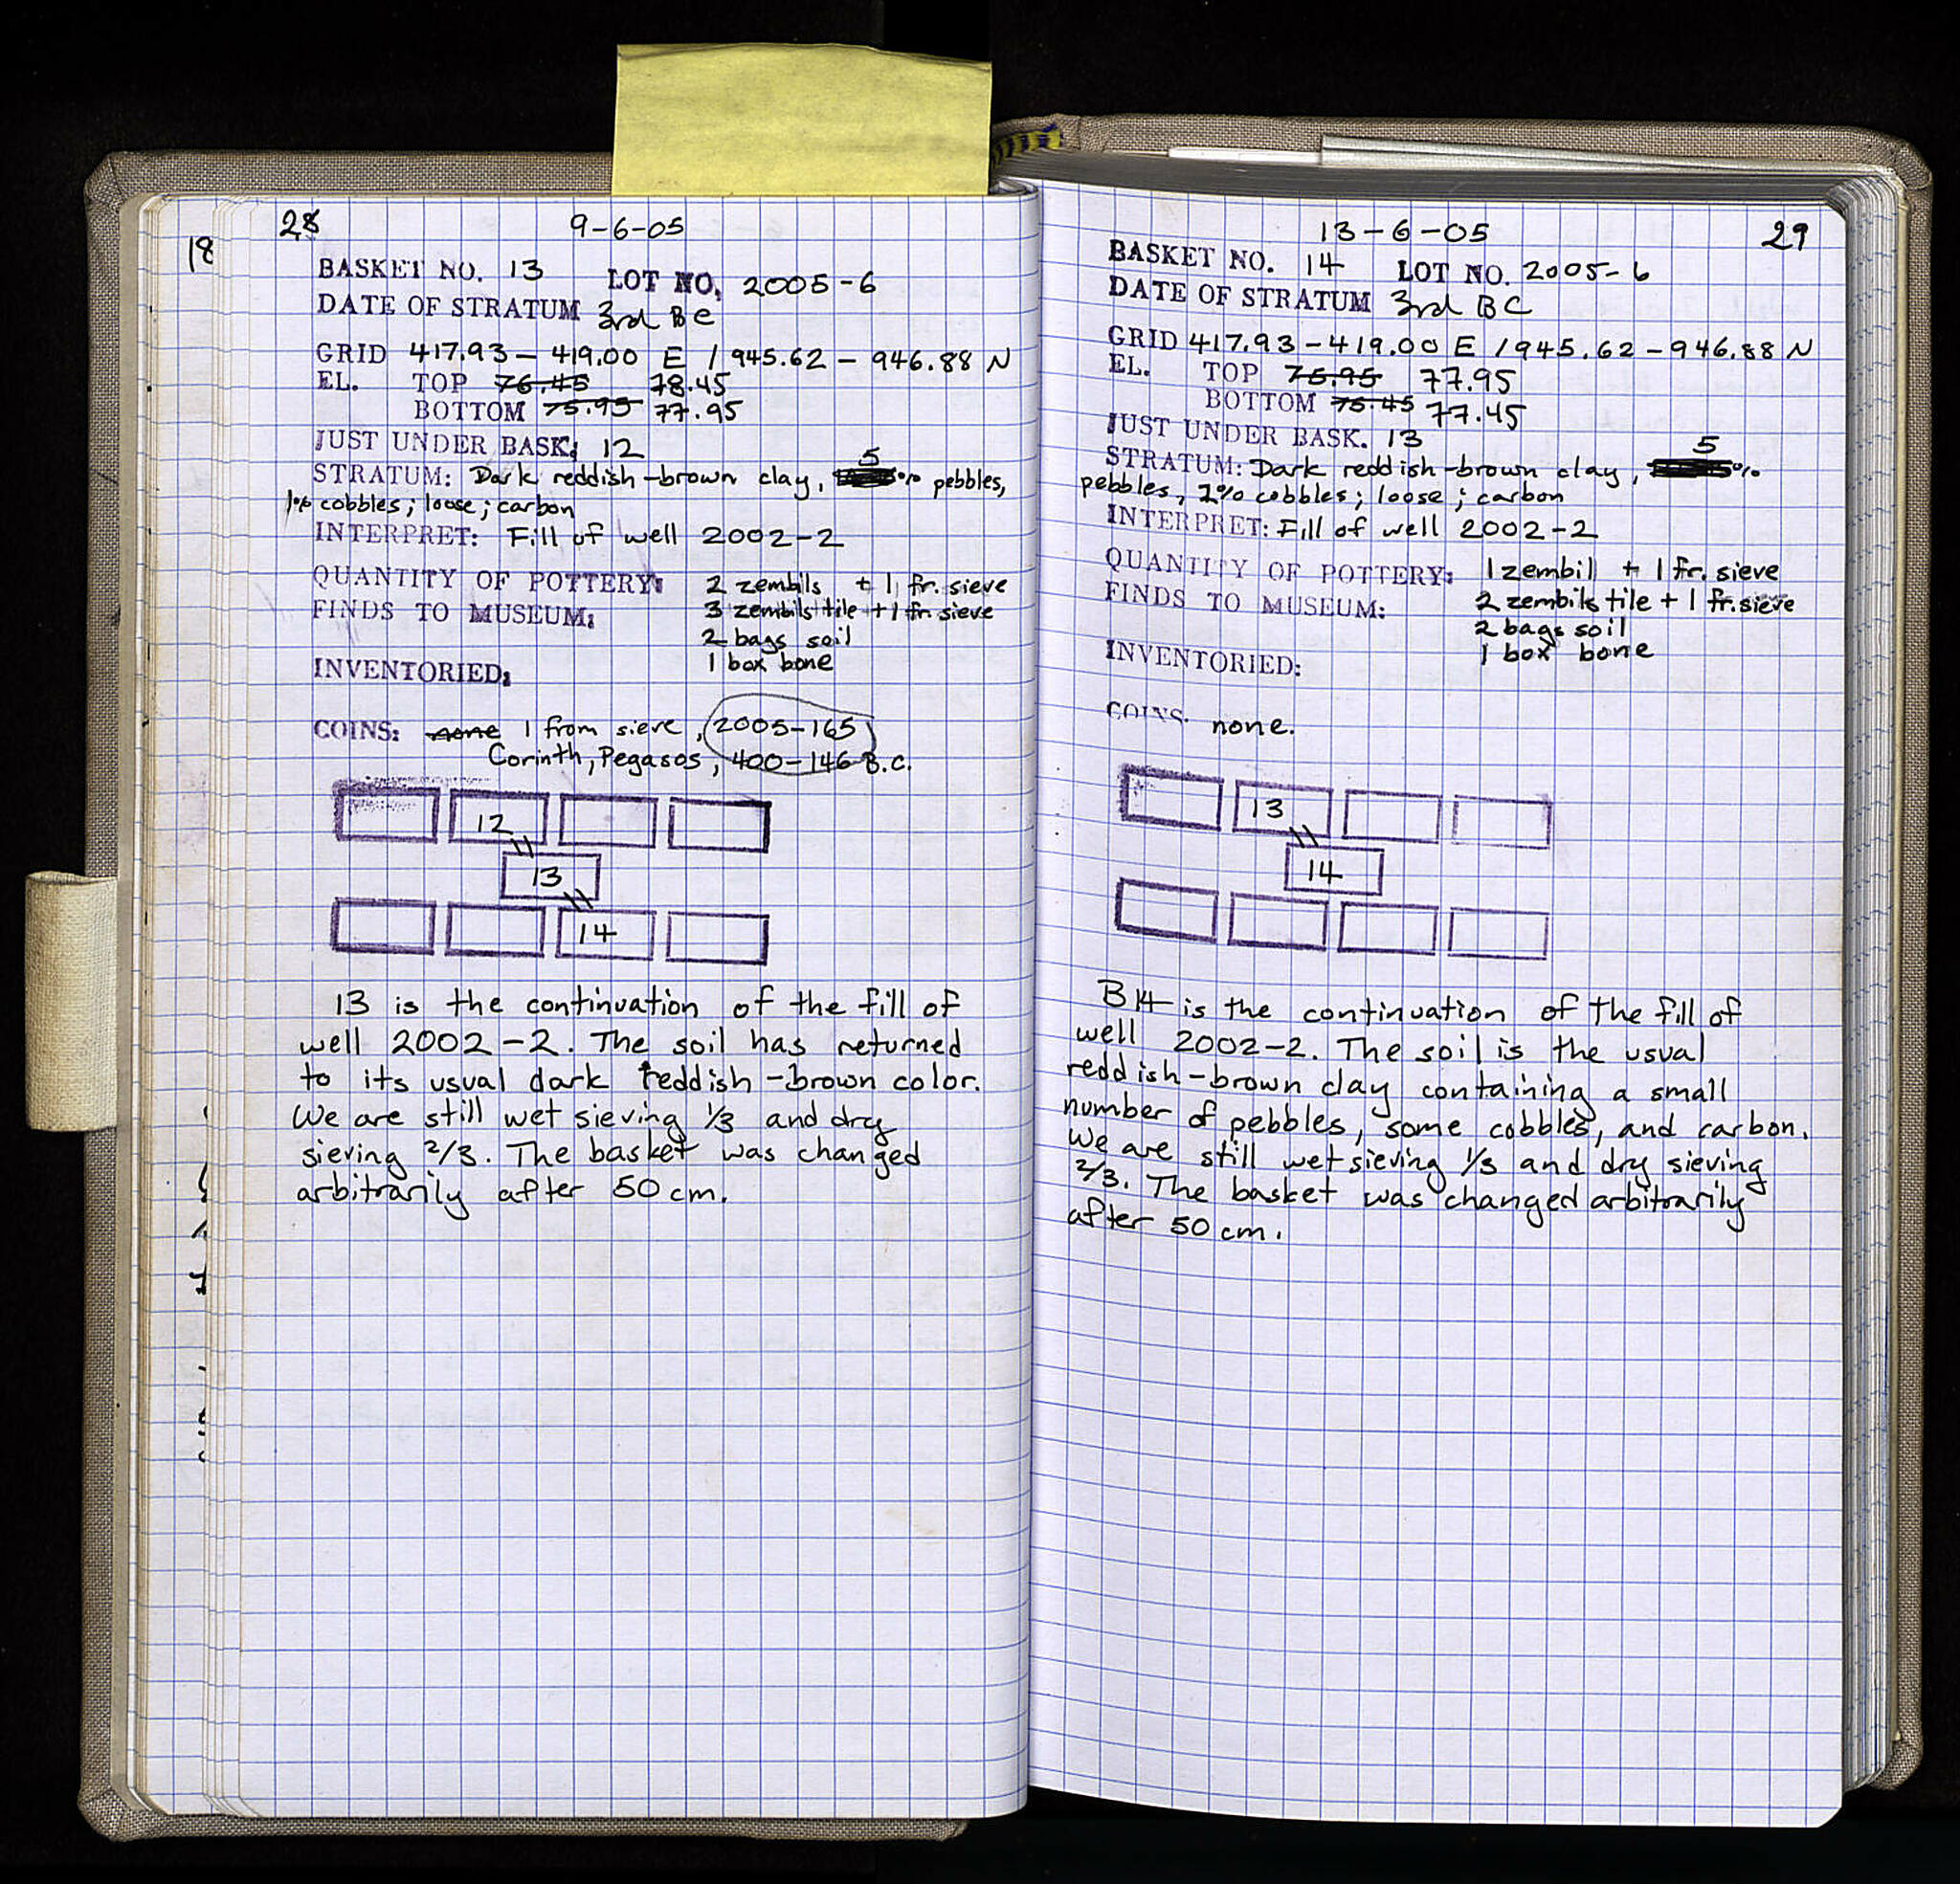 18
28
9-6-05
BASKET NO. 13 LOT NO. 2005-6
DATE OF STRATUM 3rd BC
GRID 417.93 - 419.00 E / 945.62 - 946.88 N
EL. TOP 76.45 78.45
BOTTOM 75.95 77.95
JUST UNDER BASK. 12
STRATUM: Dark reddish-brown clay, 5% pebbles,
1% cobbles; loose; carbon
INTERPRET: Fill of well 2002-2
QUANTITY OF POTTERY: 2 zembils + 1 fr. sieve
FINDS TO MUSEUM: 3 zembils tile + 1 fr. sieve
2 bags soil
1 box bone
INVENTORIED:
COINS: none 1 from sieve, 2005-165
Corinth, Pegasos, 400-146 B.C.
12
13
14
13 is the continuation of the fill of
well 2002-2. The soil has returned
to its usual dark reddish-brown color.
We are still wet sieving 1/3 and dry
sieving 2/3. The basket was changed
arbitrarily after 50 cm.
13-6-05
29
BASKET NO. 14 LOT NO. 2005-6
DATE OF STRATUM 3rd BC
GRID 417.93 - 419.00 E / 945.62 - 946.88 N
EL. TOP 75.95 77.95
BOTTOM 75.45 77.45
JUST UNDER BASK. 13
STRATUM: Dark reddish-brown clay, 5%
pebbles, 2% cobbles; loose; carbon
INTERPRET: Fill of well 2002-2
QUANTITY OF POTTERY: 1 zembil + 1 fr. sieve
FINDS TO MUSEUM: 2 zembils tile + 1 fr. sieve
2 bags soil
1 box bone
INVENTORIED:
COINS. none.
13
14
B14 is the continuation of the fill of
well 2002-2. The soil is the usual
reddish-brown clay containing a small
number of pebbles, some cobbles, and carbon.
We are still wet sieving 1/3 and dry sieving
2/3. The basket was changed arbitrarily
after 50 cm.